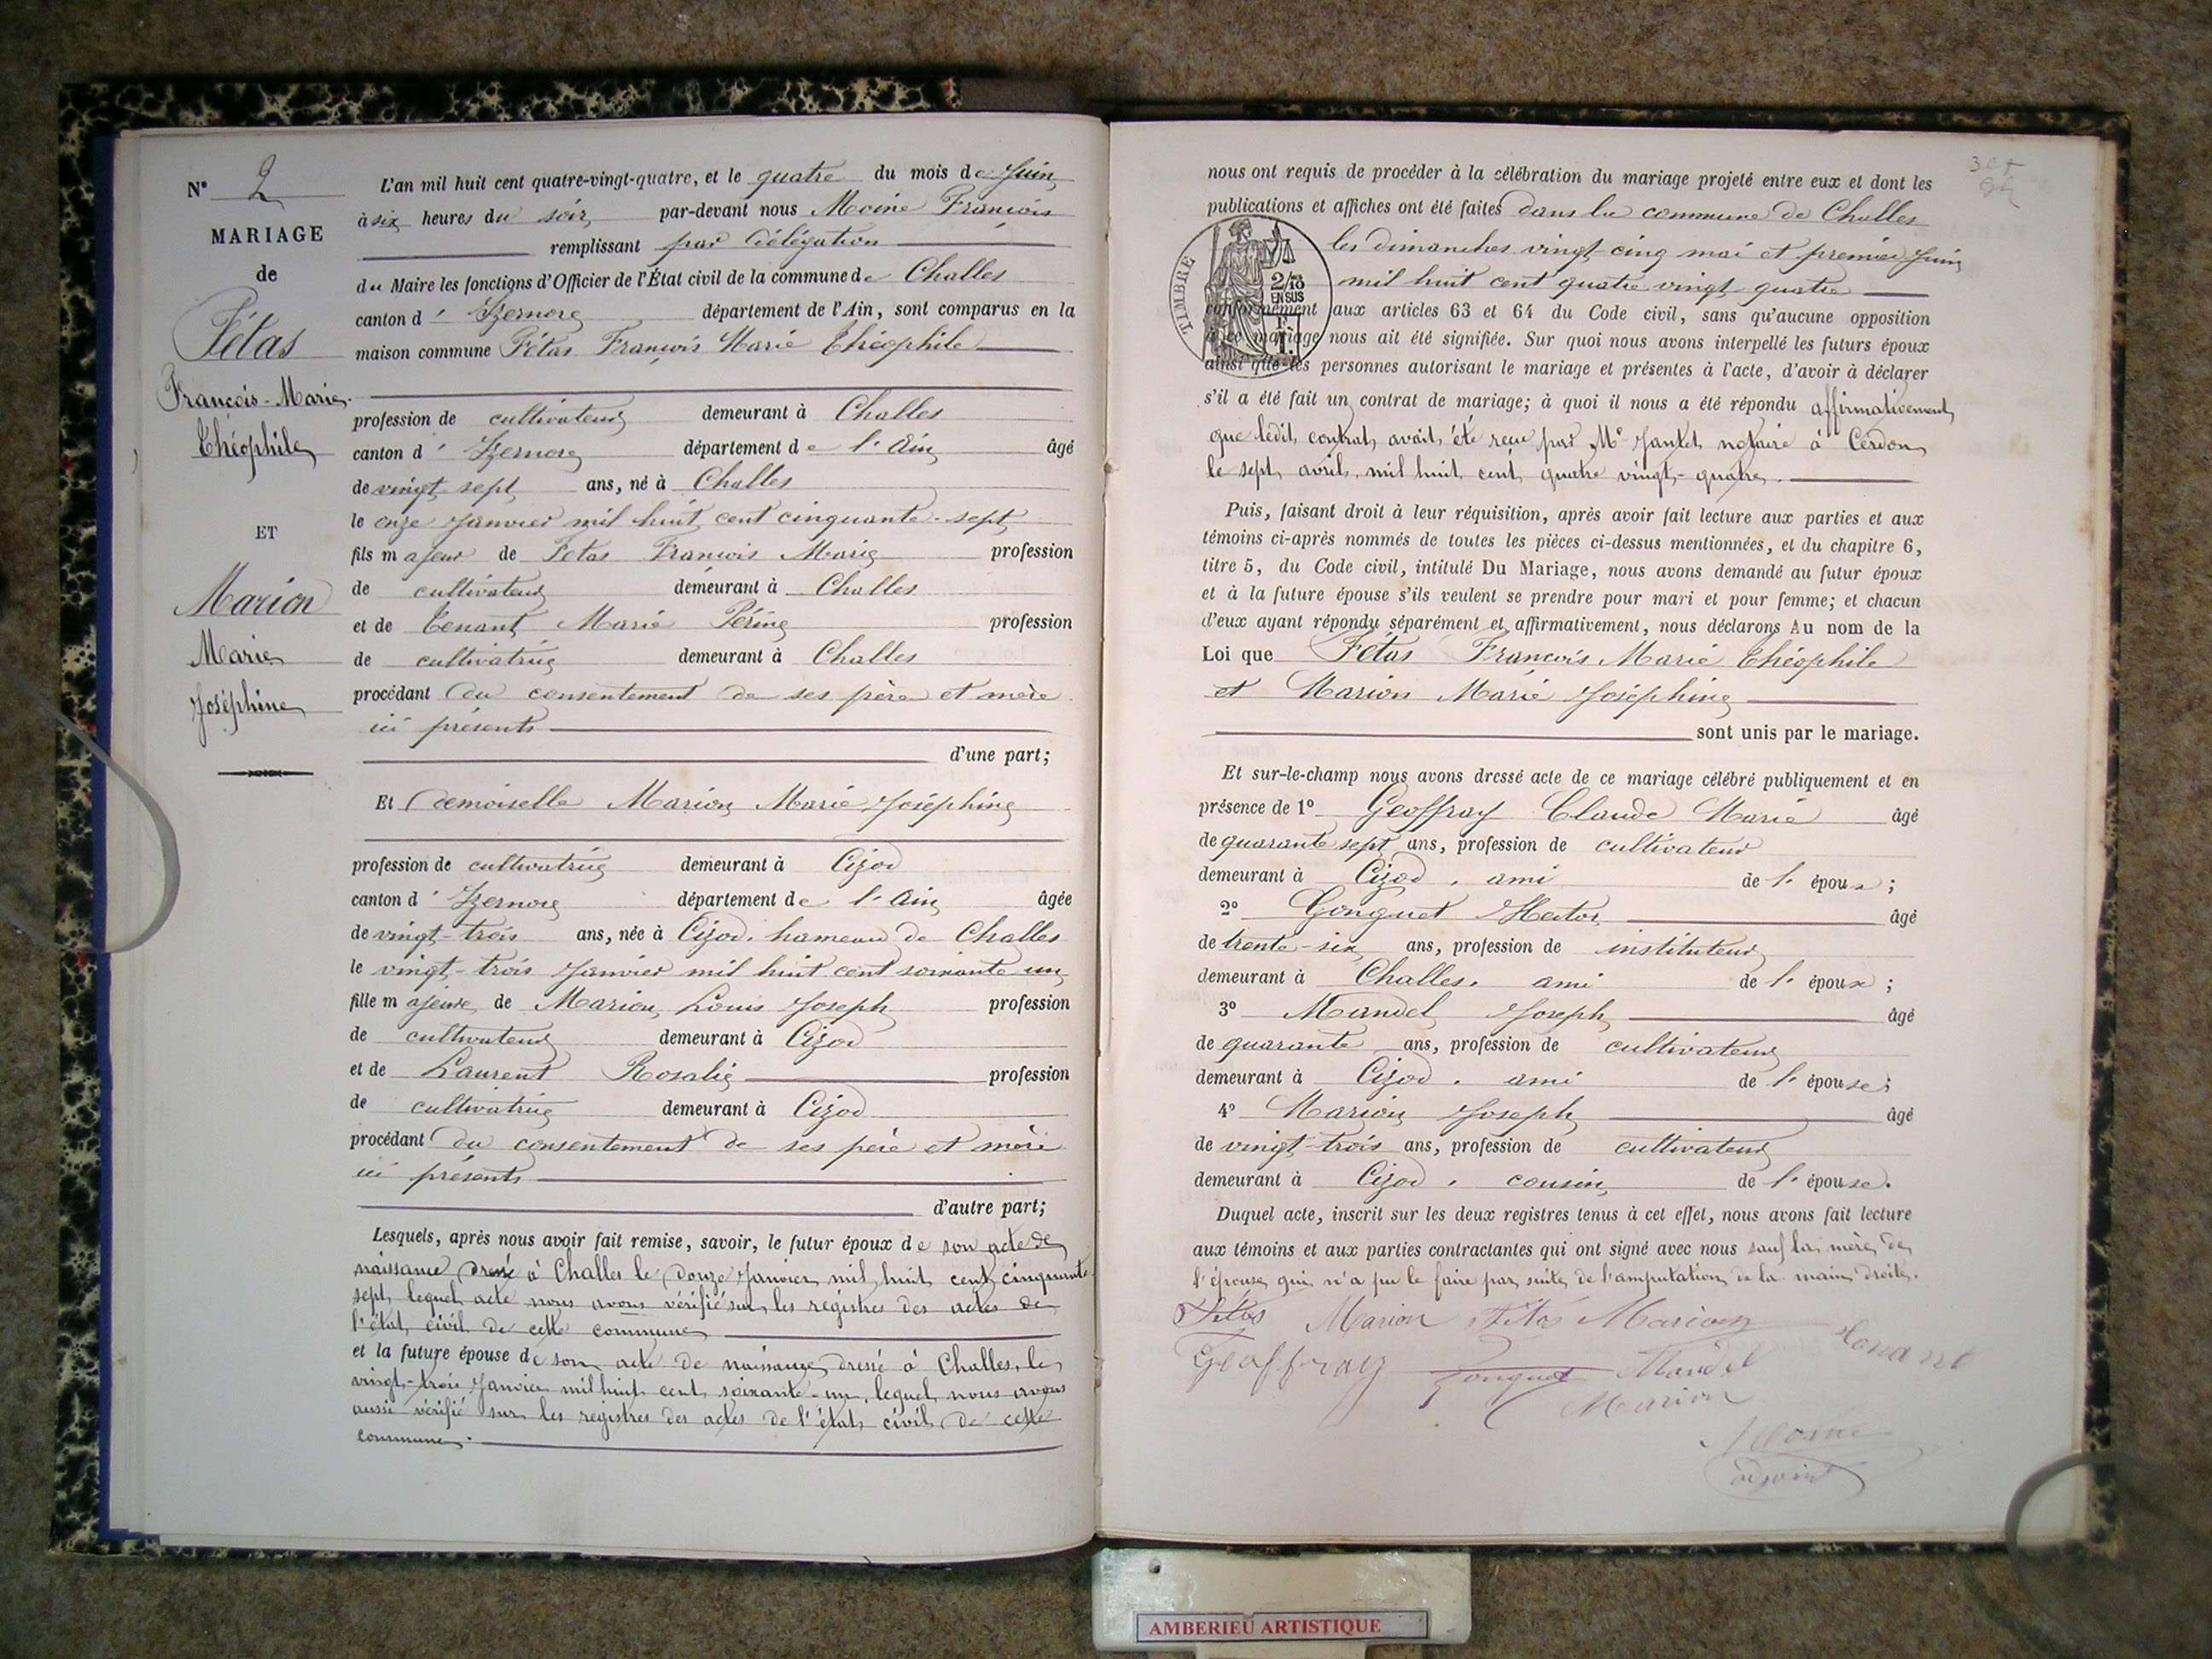 N° 2
MARIAGE
de
Fétas
François-Marie-
Théophile
ET
Marion
Marie
Joséphine
L'an mil huit cent quatre-vingt-quatre, et le quatre du mois de Juin
à six heures du soir par-devant nous Moine François
remplissant par délégation
du Maire les fonctions d'Officier de l'État civil de la commune de Challes
canton d' Izernore département de l'Ain, sont comparus en la
maison commune Fétas François Marie Théophile
profession de cultivateur demeurant à Challes
canton d' Izernore département de l'Ain âgé
de vingt sept ans, né à Challes
le onze Janvier mil huit cent cinquante-sept
fils majeur de Fétas François Marie profession
de cultivateur demeurant à Challes
et de Tenant Marie Périne profession
de cultivatrice demeurant à Challes
procédant du consentement de ses père et mère
ici présents
d'une part;
Et Demoiselle Marion Marie Joséphine
profession de cultivatrice demeurant à Cizod
canton d' Izernore département de l'Ain âgée
de vingt-trois ans, née à Cizod, hameau de Challes
le vingt-trois Janvier mil huit cent soixante un
fille majeure de Marion Louis Joseph profession
de cultivateur demeurant à Cizod
et de Laurent Rosalie profession
de cultivatrice demeurant à Cizod
procédant du consentement de ses père et mère
ici présents
d'autre part;
Lesquels, après nous avoir fait remise, savoir, le futur époux de son acte de
naissance dressé à Challes le douze Janvier mil huit cent cinquante
sept, lequel acte nous avons vérifié sur les registres des actes de
l'état civil de cette commune
et la future épouse de son acte de naissance dressé à Challes, le
vingt-trois Janvier mil huit cent soixante-un, lequel nous avons
aussi vérifié sur les registres des actes de l'état civil de cette
commune.
nous ont requis de procéder à la célébration du mariage projeté entre eux et dont les
publications et affiches ont été faites dans la commune de Challes
les dimanches vingt-cinq mai et premier Juin
mil huit cent quatre vingt quatre
conformément aux articles 63 et 64 du Code civil, sans qu'aucune opposition
à ce mariage nous ait été signifiée. Sur quoi nous avons interpellé les futurs époux
ainsi que les personnes autorisant le mariage et présentes à l'acte, d'avoir à déclarer
s'il a été fait un contrat de mariage; à quoi il nous a été répondu affirmativement
que ledit contrat avait été reçu par Me Jantet notaire à Cerdon
le sept avril mil huit cent quatre vingt-quatre.
TIMBRE
2/10
EN SUS
Puis, faisant droit à leur réquisition, après avoir fait lecture aux parties et aux
témoins ci-après nommés de toutes les pièces ci-dessus mentionnées, et du chapitre 6,
titre 5, du Code civil, intitulé Du Mariage, nous avons demandé au futur époux
et à la future épouse s'ils veulent se prendre pour mari et pour femme; et chacun
d'eux ayant répondu séparément et affirmativement, nous déclarons Au nom de la
Loi que Fétas François Marie Théophile
et Marion Marie Joséphine
sont unis par le mariage.
Et sur-le-champ nous avons dressé acte de ce mariage célébré publiquement et en
présence de 1° Geoffray Claude Marie âgé
de quarante sept ans, profession de cultivateur
demeurant à Cizod, ami de l'épouse;
2° Gonguet Hector âgé
de trente-six ans, profession de instituteur
demeurant à Challes, ami de l'époux;
3° Mandel Joseph âgé
de quarante ans, profession de cultivateur
demeurant à Cizod, ami de l'épouse;
4° Marion Joseph âgé
de vingt-trois ans, profession de cultivateur
demeurant à Cizod, cousin de l'épouse.
Duquel acte, inscrit sur les deux registres tenus à cet effet, nous avons fait lecture
aux témoins et aux parties contractantes qui ont signé avec nous sauf la mère de
l'épouse qui n'a pu le faire par suite de l'amputation de la main droite.
Fétas Marion Fétas Marion Tenant
Geoffray Gonguet Mandel
Marion
Moine
adjoint
AMBERIEU ARTISTIQUE